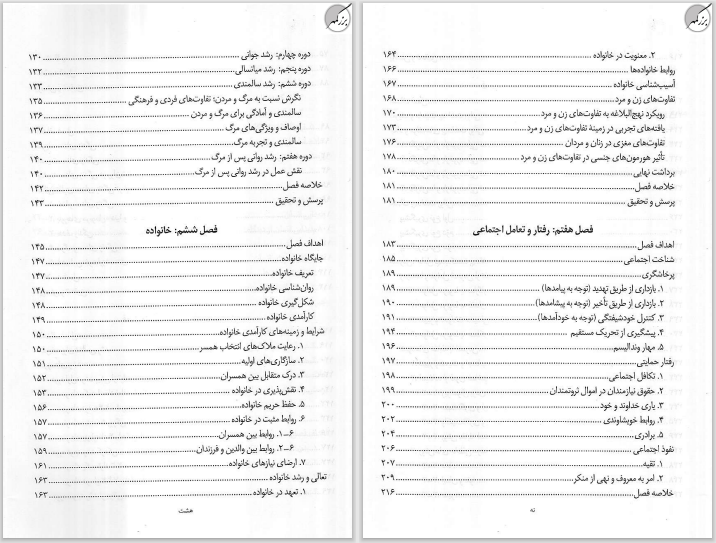 بزرگمهر
دوره چهارم: رشد جوانی ۱۳۰
دوره پنجم: رشد میانسالی ۱۳۲
دوره ششم: رشد سالمندی ۱۳۳
نگرش نسبت به مرگ و مردن؛ تفاوت‌های فردی و فرهنگی ۱۳۵
سالمندی و آمادگی برای مرگ و مردن ۱۳۶
اوصاف و ویژگی‌های مرگ ۱۳۷
سالمندی و تجربه مرگ ۱۳۹
دوره هفتم: رشد روانی پس از مرگ ۱۴۰
نقش عمل در رشد روانی پس از مرگ ۱۴۰
خلاصه فصل ۱۴۲
پرسش و تحقیق ۱۴۳
فصل ششم: خانواده
اهداف فصل ۱۴۵
جایگاه خانواده ۱۴۷
تعریف خانواده ۱۴۷
روان‌شناسی خانواده ۱۴۸
شکل‌گیری خانواده ۱۴۸
کارآمدی خانواده ۱۴۹
شرایط و زمینه‌های کارآمدی خانواده ۱۵۰
۱. رعایت ملاک‌های انتخاب همسر ۱۵۰
۲. سازگاری‌های اولیه ۱۵۱
۳. درک متقابل بین همسران ۱۵۲
۴. نقش‌پذیری در خانواده ۱۵۳
۵. حفظ حریم خانواده ۱۵۶
۶. روابط مثبت در خانواده ۱۵۷
۶ـ۱. روابط بین همسران ۱۵۷
۶ـ۲. روابط بین والدین و فرزندان ۱۵۹
۷. ارضای نیازهای خانواده ۱۶۱
تعالی و رشد خانواده ۱۶۳
۱. تعهد در خانواده ۱۶۳
هشت
بزرگمهر
۲. معنویت در خانواده ۱۶۴
روابط خانواده‌ها ۱۶۶
آسیب‌شناسی خانواده ۱۶۷
تفاوت‌های زن و مرد ۱۶۸
رویکرد نهج‌البلاغه به تفاوت‌های زن و مرد ۱۷۰
یافته‌های تجربی در زمینهٔ تفاوت‌های زن و مرد ۱۷۳
تفاوت‌های مغزی در زنان و مردان ۱۷۶
تأثیر هورمون‌های جنسی در تفاوت‌های زن و مرد ۱۷۸
برداشت نهایی ۱۸۰
خلاصه فصل ۱۸۱
پرسش و تحقیق ۱۸۱
فصل هفتم: رفتار و تعامل اجتماعی
اهداف فصل ۱۸۳
شناخت اجتماعی ۱۸۵
پرخاشگری ۱۸۹
۱. بازداری از طریق تهدید (توجه به پیامدها) ۱۸۹
۲. بازداری از طریق تأخیر (توجه به پیشامدها) ۱۹۰
۳. کنترل خودشیفتگی (توجه به خودآمدها) ۱۹۱
۴. پیشگیری از تحریک مستقیم ۱۹۴
۵. مهار وندالیسم ۱۹۶
رفتار حمایتی ۱۹۷
۱. تکافل اجتماعی ۱۹۸
۲. حقوق نیازمندان در اموال ثروتمندان ۱۹۹
۳. یاری خداوند و خود ۲۰۰
۴. روابط خویشاوندی ۲۰۲
۵. برادری ۲۰۴
نفوذ اجتماعی ۲۰۶
۱. تقیه ۲۰۷
۲. امر به معروف و نهی از منکر ۲۰۹
خلاصه فصل ۲۱۶
نه